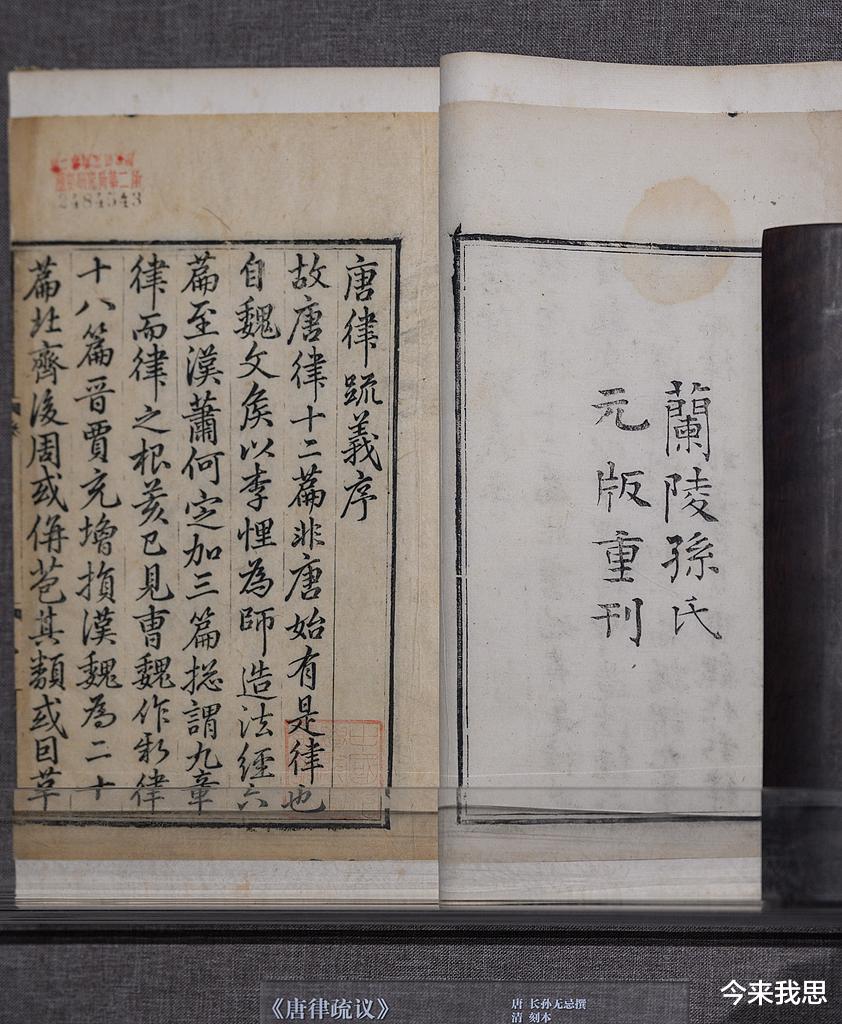 蘭陵孫氏
元版重刊
唐律疏義序
故唐律十二篇非唐始有是律也
自魏文矦以李悝為師造法經六
篇至漢蕭何定加三篇捴謂九章
律而律之根荄已見曹魏作新律
十八篇晋賈充増損漢魏為二十
篇北齊後周或併苞其類或因草
2484543
《唐律疏议》
唐 长孙无忌撰
清 刻本
今来我思